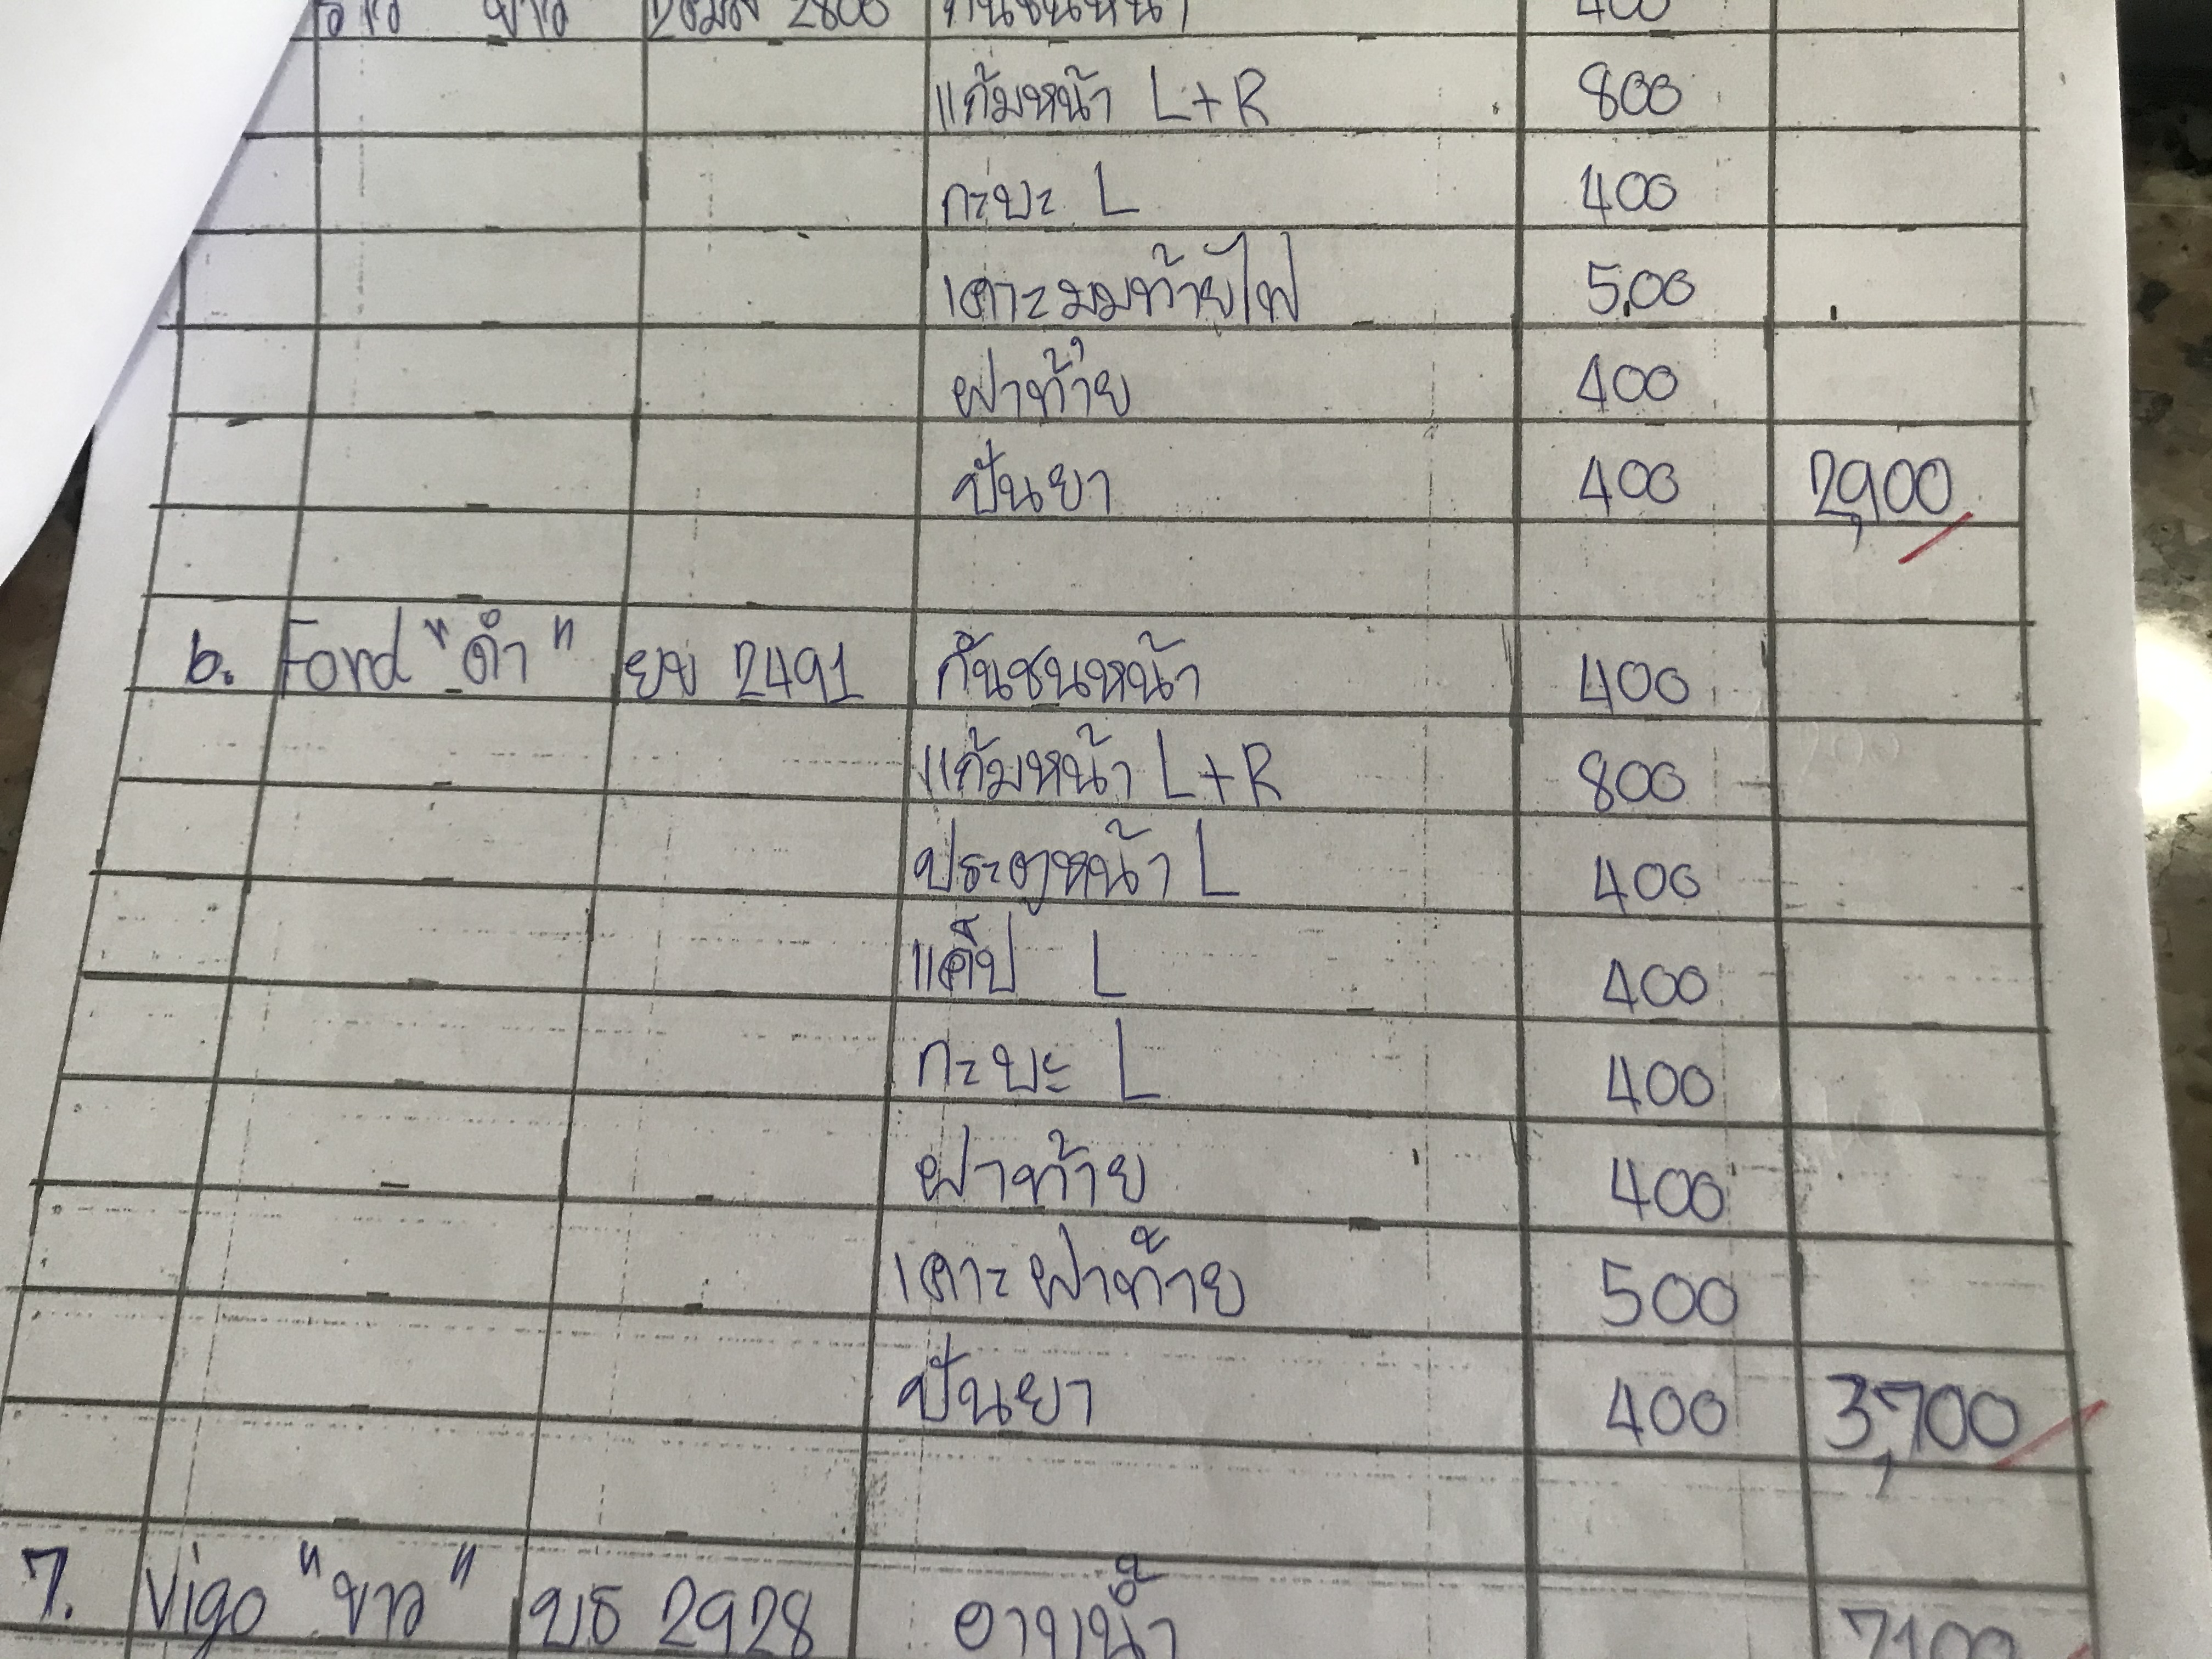 2800 กันชนหน้า 400
แก้มหน้า L+R 800
กะบะ L 400
เคาะมุมท้ายไฟ 500
ฝาท้าย 400
ปั่นยา 400 2,900
6. Ford "ดำ" ยข 2491 กันชนหน้า 400
แก้มหน้า L+R 800
ประตูหน้า L 400
แค๊ป L 400
กะบะ L 400
ฝาท้าย 400
เคาะฝาท้าย 500
ปั่นยา 400 3,700
7. Vigo "ขาว" บธ 2928 อาบน้ำ 7100